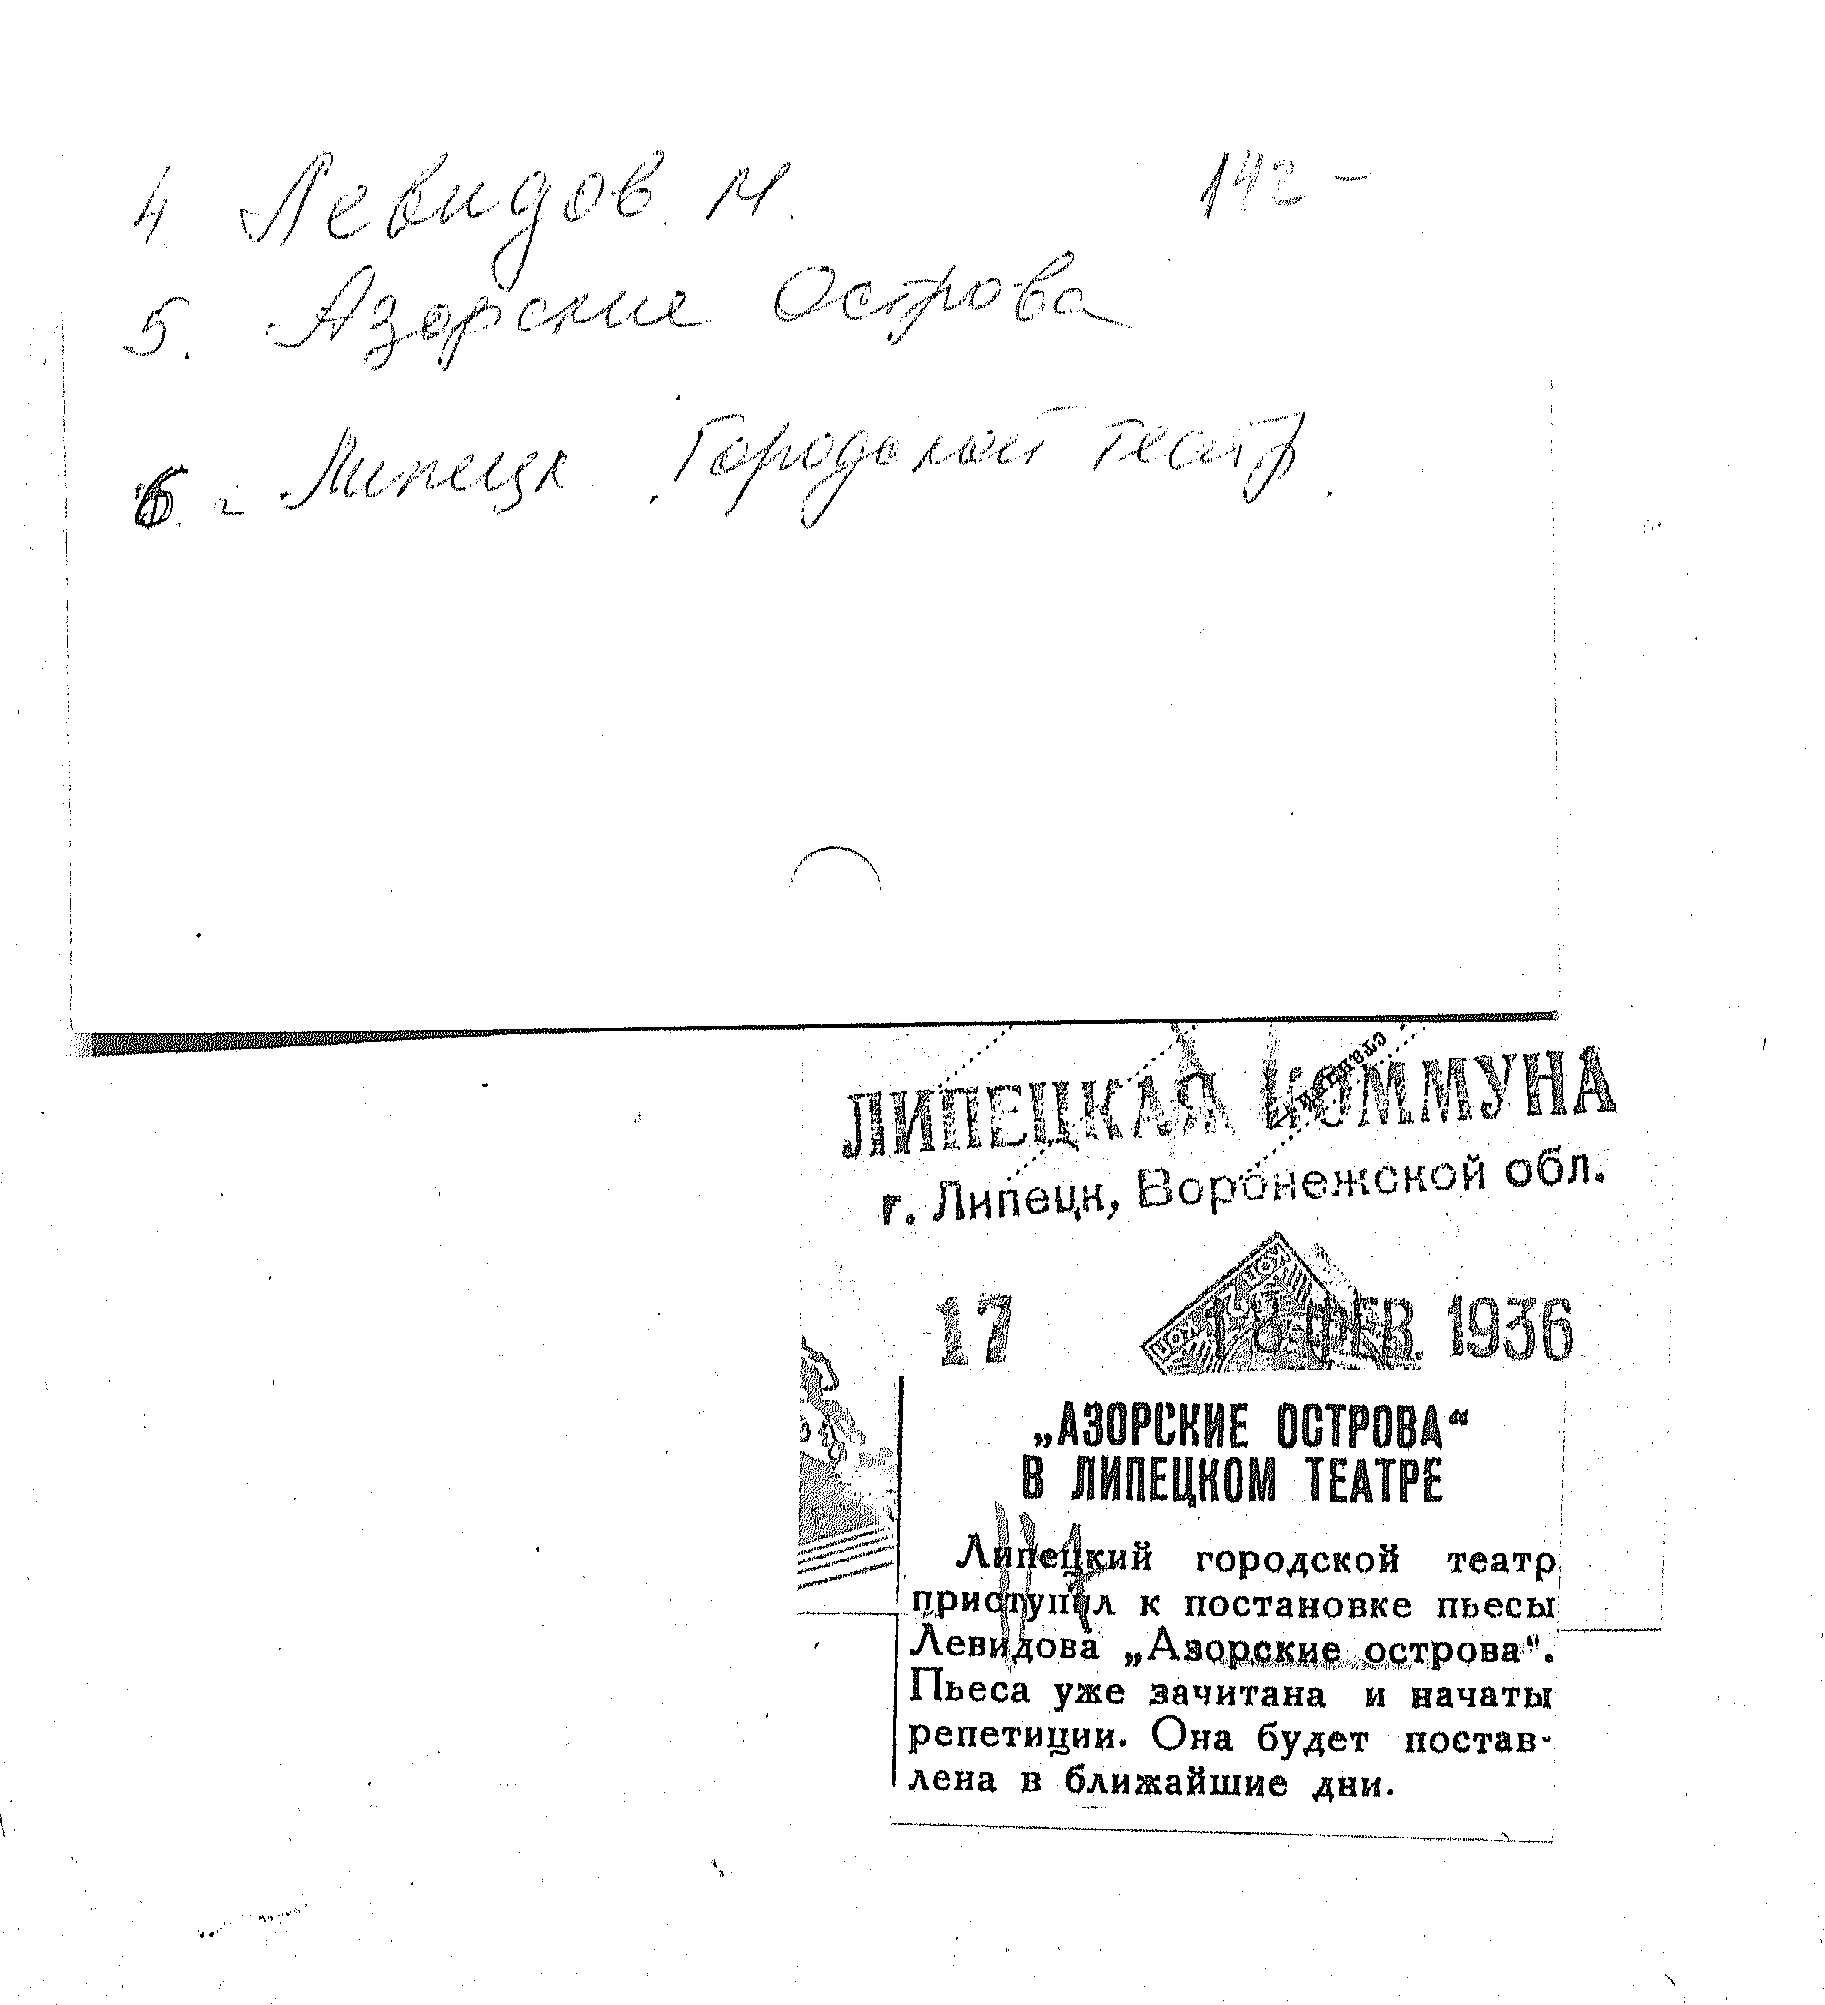 4. Левидов. М. 142 —
5. Азорские Острова
6. г. Липецк. Городской театр.
ЛИПЕЦКАЯ КОММУНА
г. Липецк, Воронежской обл.
17 18 ФЕВ. 1936
„АЗОРСКИЕ ОСТРОВА“
В ЛИПЕЦКОМ ТЕАТРЕ
Липецкий городской театр
приступил к постановке пьесы
Левидова „Азорские острова“.
Пьеса уже зачитана и начаты
репетиции. Она будет постав-
лена в ближайшие дни.